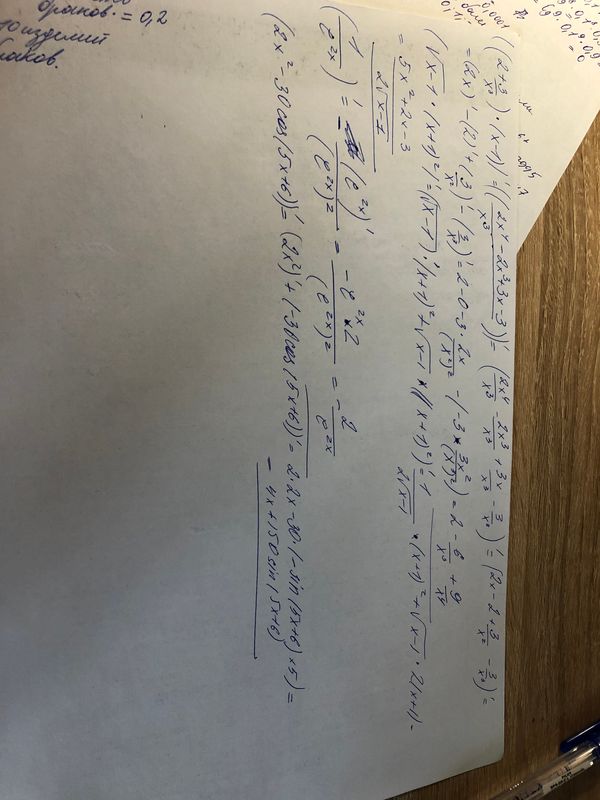 браков. = 0,2
10 изделий
браков.
((2 + 3/x³)·(x-1))' = ((2x⁴ - 2x³ + 3x - 3)/x³)' = (2x⁴/x³ - 2x³/x³ + 3x/x³ - 3/x³)' = (2x - 2 + 3/x² - 3/x³)' =
= (2x)' - (2)' + (3/x²)' - (3/x³)' = 2 - 0 - 3·2x/(x²)² - (-3·3x²/(x³)²) = 2 - 6/x³ + 9/x⁴
(√x-1·(x+1)²)' = (√x-1)'·(x+1)² + √x-1·((x+1)²)' = 1/2√x-1·(x+1)² + √x-1·2(x+1) =
= 5x² + 2x - 3/2√x-1
(1/e²ˣ)' = -(e²ˣ)'/(e²ˣ)² = -e²ˣ·2/(e²ˣ)² = -2/e²ˣ
(2x² - 30cos(5x+6))' = (2x²)' + (-30cos(5x+6))' = 2·2x - 30·(-sin(5x+6)×5) =
= 4x + 150sin(5x+6)